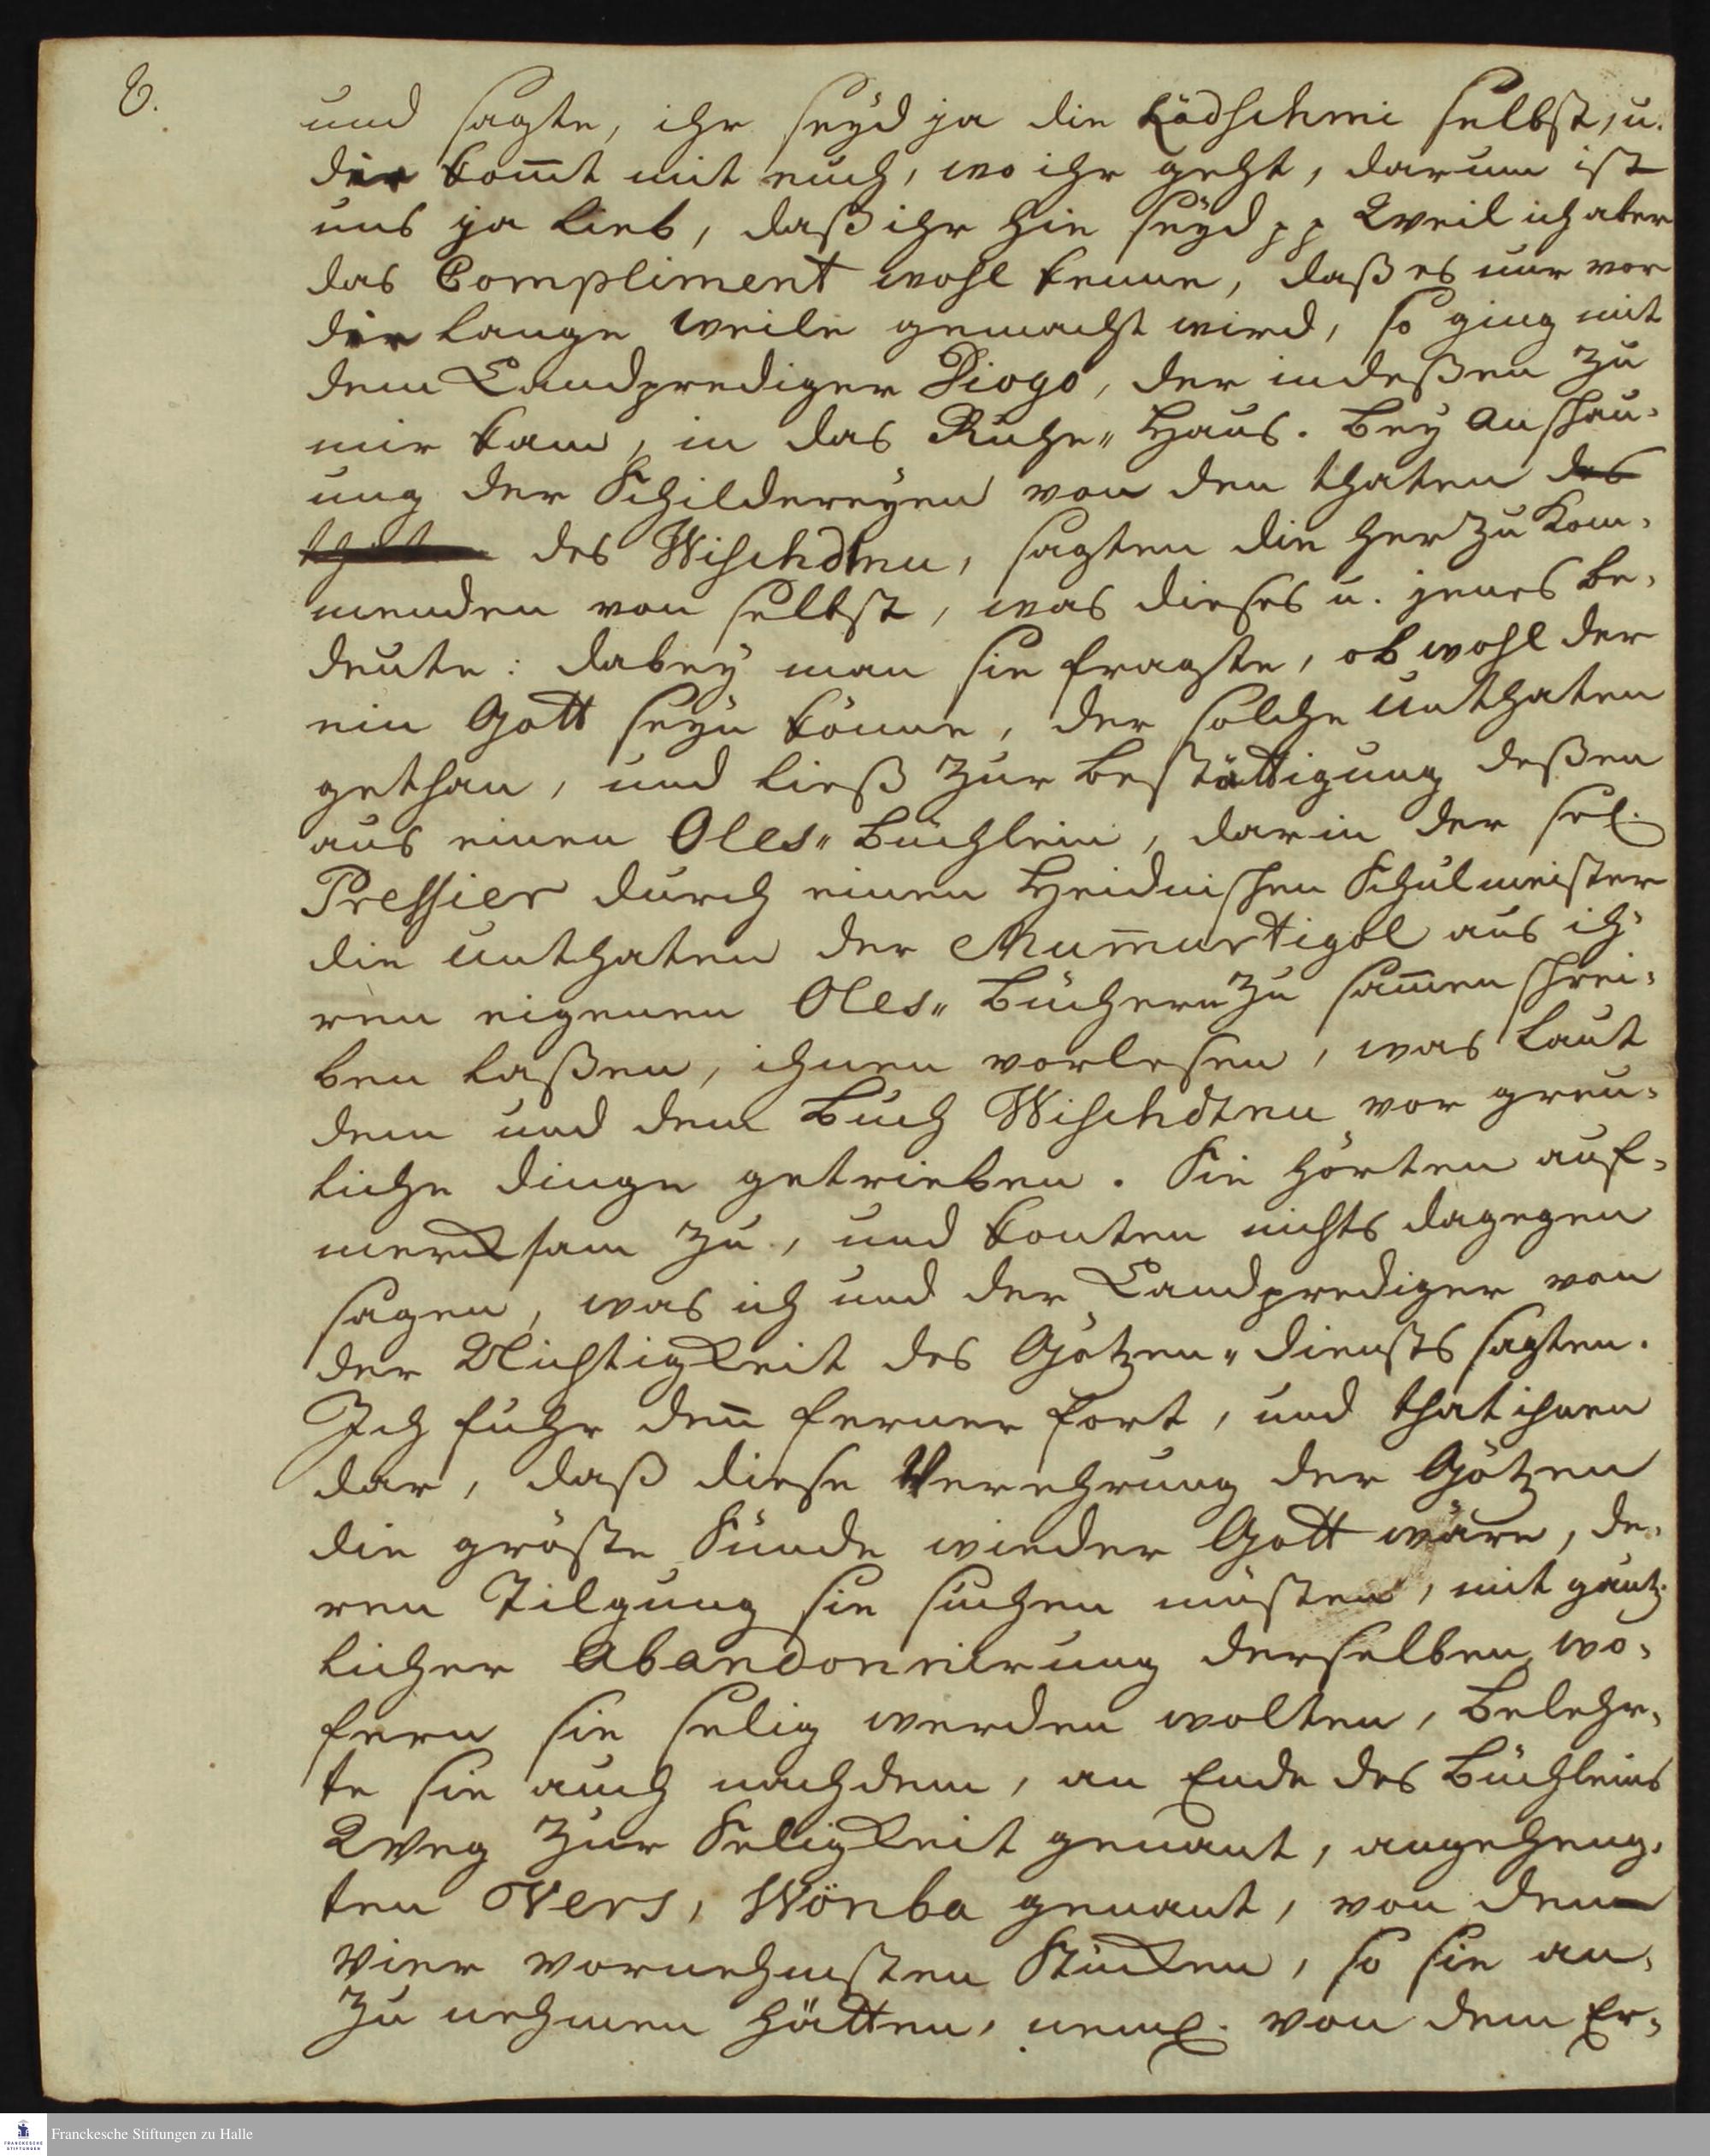 8.
und sagte, ihr seyd ja die Lädschmi selbst, u.
die kom̅t mit euch, wo ihr geht, darum ist
uns ja lieb, daß ihr hie seyd pp Weil ich aber
das Compliment wohl kenne, daß es nur vor
die lange weile gemacht wird, so ging mit
dem Landprediger Diogo, der indeßen zu
mir kam, in das Ruhe„Haus. Bey Anschau¬
ung der Schildereyen von den thaten des
des Wischdnu, sagten die herzu kom¬
menden von selbst, was dieses u. jenes be¬
deute: dabey man sie fragte, ob wohl der
ein Gott seyn könne, der solche Unthaten
gethan, und ließ zur bestättigung deßen
aus einen Oles„büchlein, darin der sel.
Pressier durch einen Heidnischen Schulmeister
die Unthaten der Mum̅urtigöl aus ih¬
ren eigenen Oles„Büchern zu sam̅en schrei¬
ben laßen, ihnen vorlesen, was laut
dem und dem Buch Wischdtnu vor greu¬
liche dinge getrieben. Sie hörten auf¬
mercksam zu, und konten nichts dagegen
sagen, was ich und der Landprediger von
der Nichtigkeit des Götzen„diensts sagten.
Ich fuhr den̅ ferner fort, und that ihnen
dar, daß diese Verehrung der Götzen
die gröste Sünde wieder Gott wäre, de¬
ren Tilgung sie suchen müsten, mit gäntz¬
licher Abandonnirung derselben, wo¬
fern sie selig werden wolten, belehr¬
te sie auch nachdem, an Ende des Büchleins
Weg zur Seligkeit genant, angeheng¬
ten Vers, Wönba genant, von dem
vier vornehmsten Stücken, so sie an¬
zu nehmen hätten, neml. von dem Er¬
Franckesche Stiftungen zu Halle